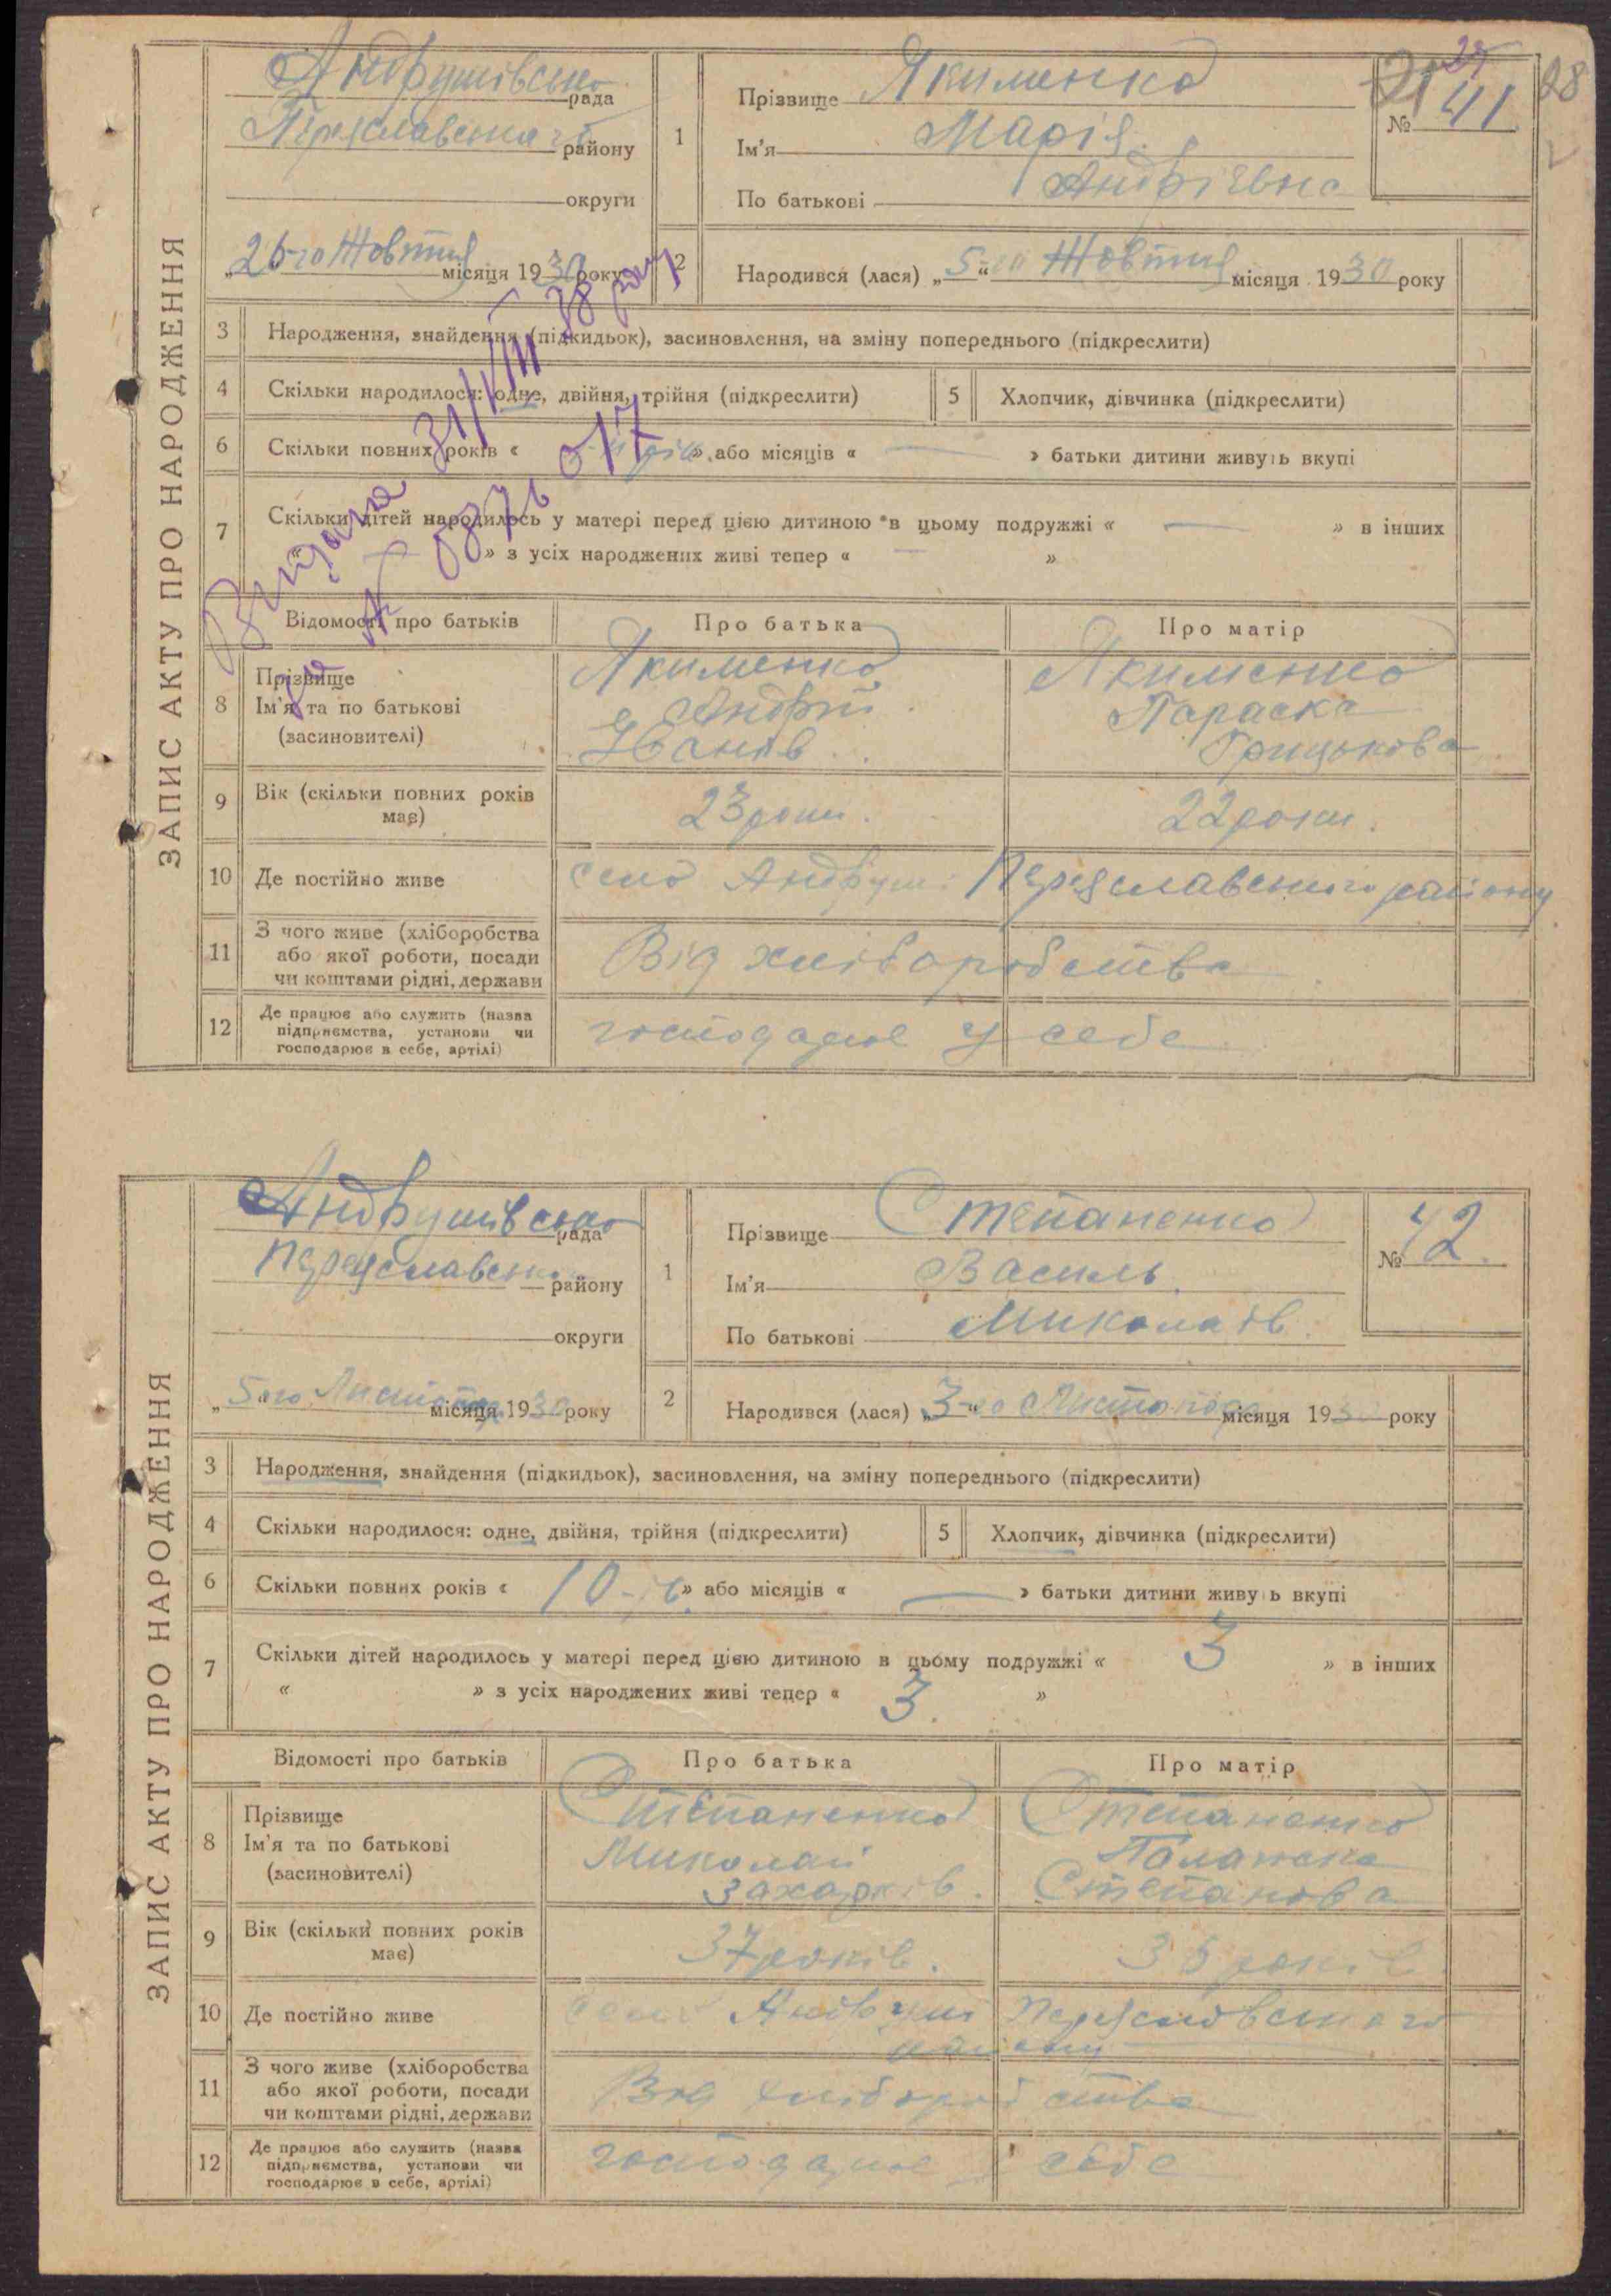 ЗАПИС АКТУ ПРО НАРОДЖЕННЯ
28
Андрушівська рада
Переяславського району
округи
26-го Жовтня місяця 1930 року
1
Прізвище Якименко
Ім'я Марія
По батькові Андрієвна
№ 41
2
Народився (лася) „5-го“ Жовтня місяця 1930 року
3 Народження, знайдення (підкидьок), засиновлення, на зміну попереднього (підкреслити)
4 Скільки народилося: одне, двійня, трійня (підкреслити)
5 Хлопчик, дівчинка (підкреслити)
6 Скільки повних років « » або місяців « — » батьки дитини живуть вкупі
7 Скільки дітей народилось у матері перед цією дитиною в цьому подружжі « — » в інших
« » з усіх народжених живі тепер « — »
Видана 31/VIII 38 року
Відомості про батьків
Про батька
Про матір
8 Прізвище
Ім'я та по батькові
(засиновителі)
Якименко
Андрій
Іванів
Якименко
Параска
Грицькова
9 Вік (скільки повних років
має)
23 роки.
22 роки.
10 Де постійно живе
село Андруші Переяславського району
11 З чого живе (хліборобства
або якої роботи, посади
чи коштами рідні, держави
Від хліборобства
12 Де працює або служить (назва
підприємства, установи чи
господарює в себе, артілі)
господарює у себе
ЗАПИС АКТУ ПРО НАРОДЖЕННЯ
Андрушівська рада
Переяславськ района району
округи
„5-го Листопада місяця 1930 року
1
Прізвище Степаненко
Ім'я Василь
По батькові Миколаїв
№ 42.
2
Народився (лася) „3-го“ Листопада місяця 1930 року
3 Народження, знайдення (підкидьок), засиновлення, на зміну попереднього (підкреслити)
4 Скільки народилося: одне, двійня, трійня (підкреслити)
5 Хлопчик, дівчинка (підкреслити)
6 Скільки повних років « 10-ів » або місяців « — » батьки дитини живуть вкупі
7 Скільки дітей народилось у матері перед цією дитиною в цьому подружжі « 3 » в інших
« » з усіх народжених живі тепер « 3. »
Відомості про батьків
Про батька
Про матір
8 Прізвище
Ім'я та по батькові
(засиновителі)
Степаненко
Миколай
Захарків.
Степаненко
Палажка
Степанова
9 Вік (скільки повних років
має)
37 років.
35 років
10 Де постійно живе
село Андруші Переяславського
району
11 З чого живе (хліборобства
або якої роботи, посади
чи коштами рідні, держави
Від хліборобства
12 Де працює або служить (назва
підприємства, установи чи
господарює в себе, артілі)
господарює у себе